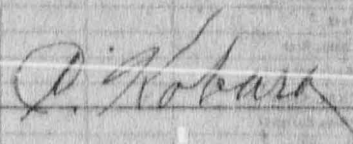 D. Kobara